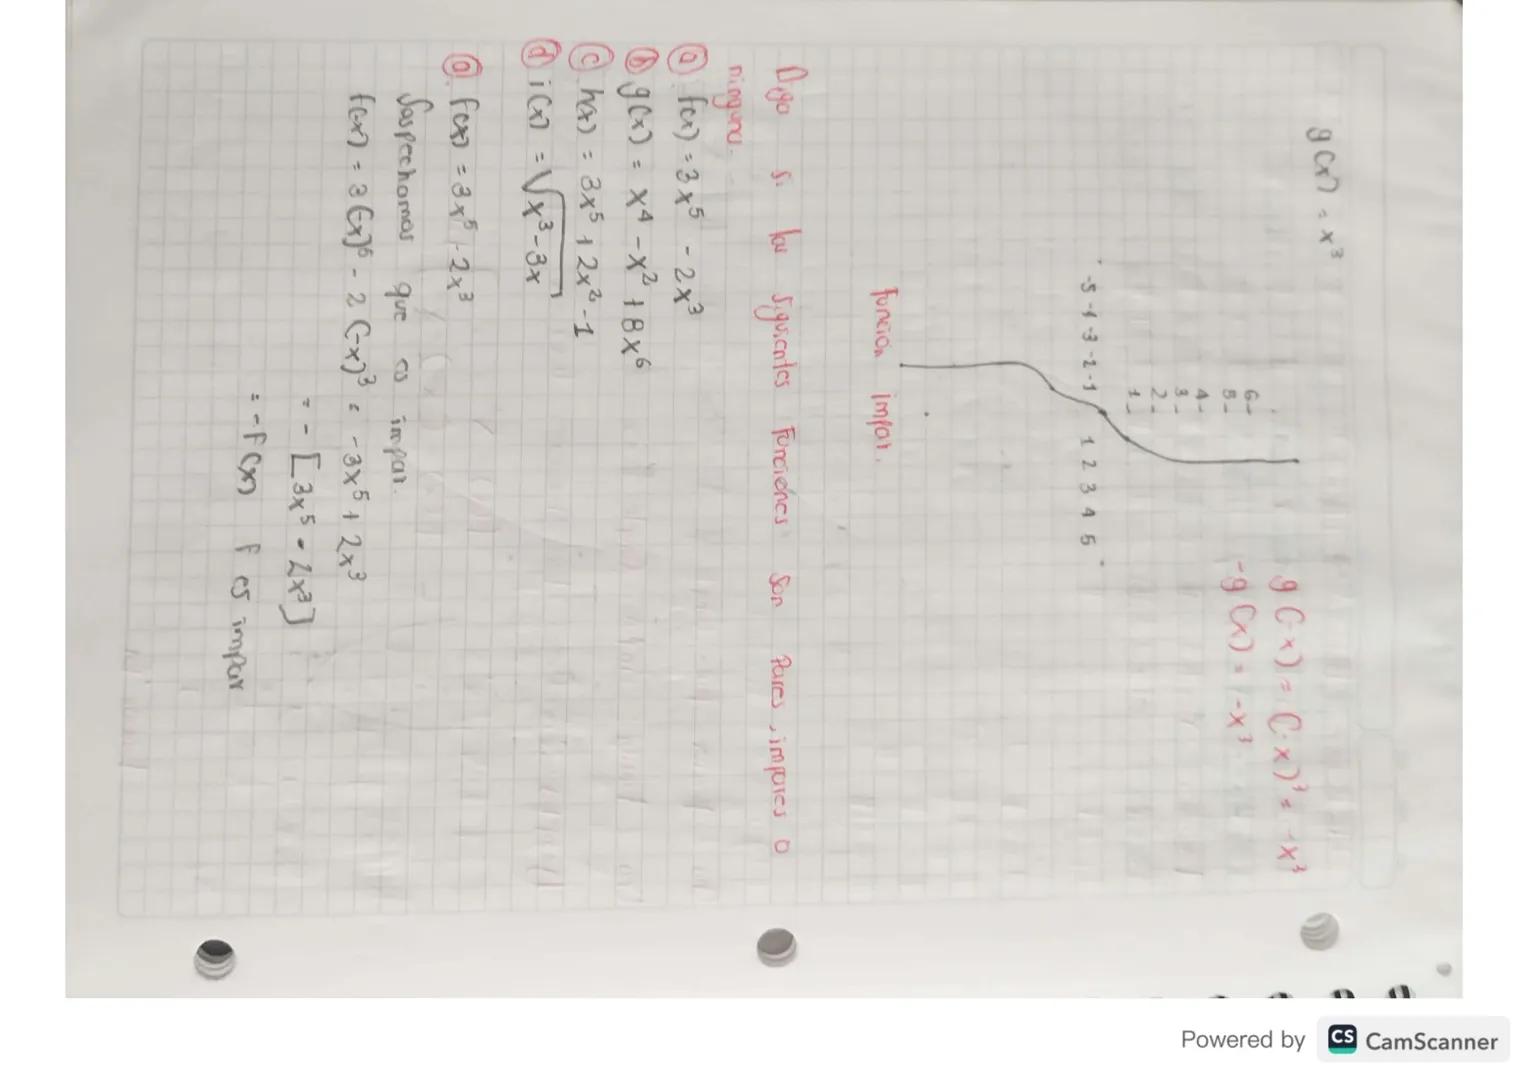 g(x) = x³
g(-x) = (-x)³ = -x³
-g(x) = -x³
6-
5-
4-
3-
2-
1-
-5 -4 -3 -2 -1 1 2 3 4 5
Función impar.
Diga si las siguientes Funciones Son Pares, impares o
ninguna.
ⓐ f(x) = 3x⁵ - 2x³
ⓑ g(x) = x⁴ - x² + 8x⁶
ⓒ h(x) = 3x⁵ + 2x² - 1
ⓓ i(x) = √x³-3x
ⓐ f(x) = 3x⁵ - 2x³
Sospechamos que es impar.
f(-x) = 3(-x)⁵ - 2(-x)³ = -3x⁵ + 2x³
= - [3x⁵ - 2x³]
= -f(x) f es impar
Powered by CS CamScanner